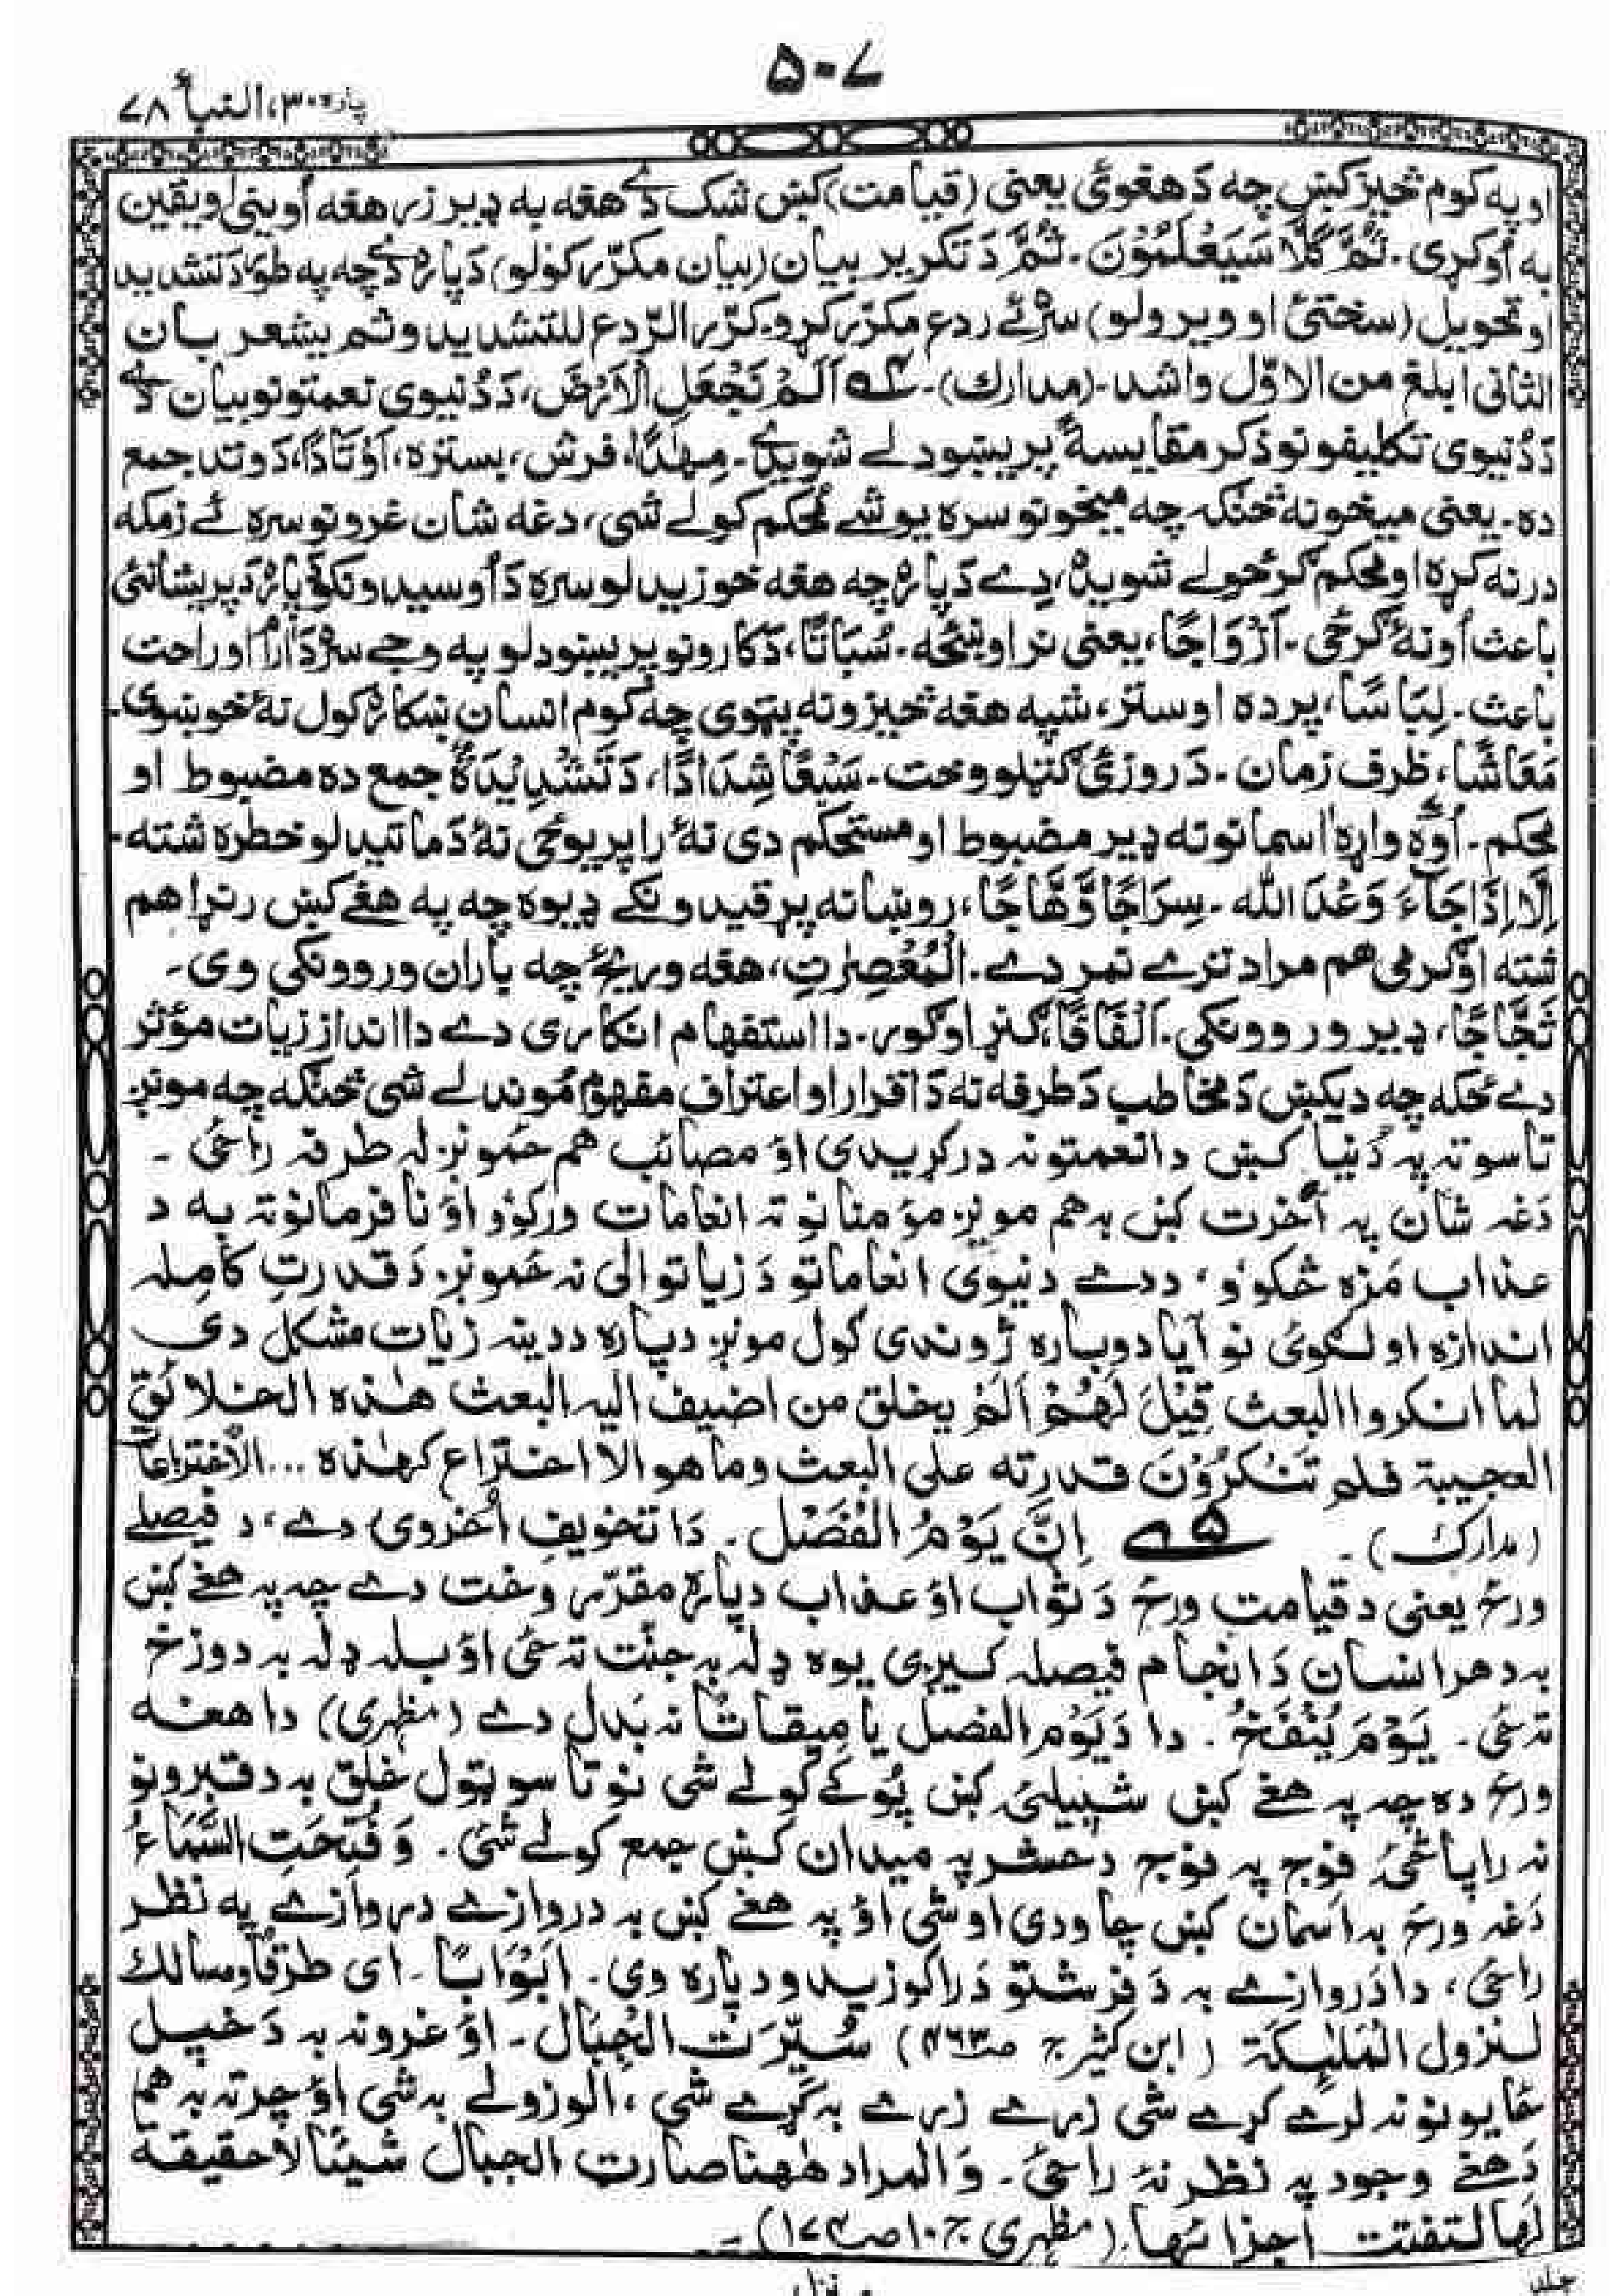 ۵۰۷
پاره ۳۰، النبأ ۷۸
او په کوم څیز کښ چه دَ هغوئ یعنی (قیامت) کښ شک دے هغه به ډیر زر هغه اُوینی او یقین
به اُوکړی ـ ثُمَّ كَلَّا سَيَعْلَمُوْنَ ـ ثُمَّ دَ تکریر بیان (بیان مکرّر کولو) دَپاره دے چه په طور دَ تشدید
او تحویل (سختئ او ویرولو) سره ئے ردع مکرّر کړو ـ کرّر الرّدع للتشدید وثم یشعر بان
الثانی ابلغ من الاوّل واشد ـ (مدارك) ـ ۴ اَلَمْ نَجْعَلِ الْاَرْضَ، دَ دُنیوی نعمتونو بیان دے
دَ دُنیوی تکلیفونو ذکر مقایسةً پریښودلے شویدے ـ مِهٰدًا، فرش، بستره، اَوْتَادًا، دَ وتد جمع
ده ـ یعنی میخونه څنګه چه میخونو سره یو شے مُحکم کولے شی، دغه شان غرونو سره ئے زمکه
درنه کړه او مُحکم ګرځولے شویده، دے دَپاره چه هغه خوزیدلو سره دَ اُوسیدونکو دَپاره دَ پریشانئ
باعث اُونهٔ ګرځی ـ اَزْوَاجًا، یعنی نر او ښځه ـ سُبَاتًا، دَ کارونو پریښودلو په وجے سره دَ آرام او راحت
باعث ـ لِبَاسًا، پرده او ستر، شپه هغه څیزونه پټوی چه کوم انسان ښکاره کول نهٔ خوښوی ـ
مَعَاشًا، ظرف زمان ـ دَ روزئ ګټلو وخت ـ سَبْعًا شِدَادًا، دَ شَدِيْدَةٌ جمع ده مضبوط او
مُحکم ـ اُوهٔ واړه اسمانونه ډیر مضبوط او مستحکم دی نهٔ راپریوځی نهٔ دَ ماتیدلو خطره شته ـ
اِلَّا اِذَا جَآءَ وَعْدَ الله ـ سِرَاجًا وَّهَّاجًا، روښانه پړقیدونکے ډیوه چه په هغے کښ رنړا هم
شته او ګرمی هم مراد ترے نمر دے ـ الْمُعْصِرٰتِ، هغه وریځے چه باران وروونکی وی ـ
ثَجَّاجًا، ډیر وروونکی ـ اَلْفَافًا، ګنړ او ګور ـ دا استفهام انکاری دے دا انداز زیات مؤثر
دے ځکه چه دیکښ دَ مخاطب دَ طرفه نه دَ اقرار او اعتراف مفهوم مُوندلے شی څنګه چه مونږ
تاسو ته په دُنیا کښ دا نعمتونه درکړیدی اؤ مصائب هم ځمونږ له طرفه راځی ـ
دَغه شان په آخرت کښ به هم مونږ مؤمنانو ته انعامات ورکوؤ اؤ نافرمانو ته به د
عذاب مَزه څکوؤ، ددے دنیوی انعاماتو دَ زیاتوالی نه ځمونږ دَ قدرتِ کامله
اندازه اولګوئ نو آیا دوباره ژوندی کول مونږ دپاره ددینه زیات مشکل دی
لما انکروا البعث قِيْلَ لَهُمْ اَلَمْ یخلق من اضیف الیہ البعث هٰذه الخلائق
العجیبة فلم تَنْکِرُوْنَ قدرته علی البعث وما هو الا اختراع کهٰذه ... الاختراعات
(مدارك) ـ ۵ اِنَّ يَوْمَ الْفَصْل ـ دَا تخویفِ اُخروی دے، د فیصلے
ورځ یعنی د قیامت ورځ دَ ثواب اؤ عذاب دپاره مقرّر وخت دے چه په هغے کښ
به د هر انسان دَ انجام فیصله کیږی یوه ډله به جنّت ته ځی اؤ بله ډله به دوزخ
ته ځی ـ يَوْمَ يُنْفَخُ ـ دا دَ يَوْمَ الفصل یا مِیقاتًا نه بَدل دے (مظهری) دا هغه
ورځ ده چه په هغے کښ شپیلئ کښ پُوکے کولے شی نو تاسو ټول خلق به د قبرونو
نه راپاڅئ فوج په فوج د حشر په میدان کښ جمع کولے شئ ـ وَفُتِحَتِ السَّمَاءُ
دَغه ورځ به اَسمان کښ چاودی اوشی اؤ په هغے کښ به دروازے دروازے په نظر
راځی، دا دَروازے به دَ فرشتو دَ راکوزیدو دپاره وی ـ اَبْوَابًا ـ ای طرقًا ومسالك
لنزول الْمَلٰٓئِکَة (ابن کثیر ج ۴ صـ۴۶۳) سُيِّرَت الْجِبَال ـ اؤ غرونه به دَ خپل
ځایونو نه لرے کړے شی زرے زرے به کړے شی، الوزولے به شی اؤ چرته به هم
دَهغے وجود په نظر نهٔ راځئ ـ وَالمراد هٰهنا صارت الجبال شیئًا لا حقیقة
لَها لتفتت اجزائها (مظهری ج ۱۰ صـ۱۷۴)
منزل
جلد